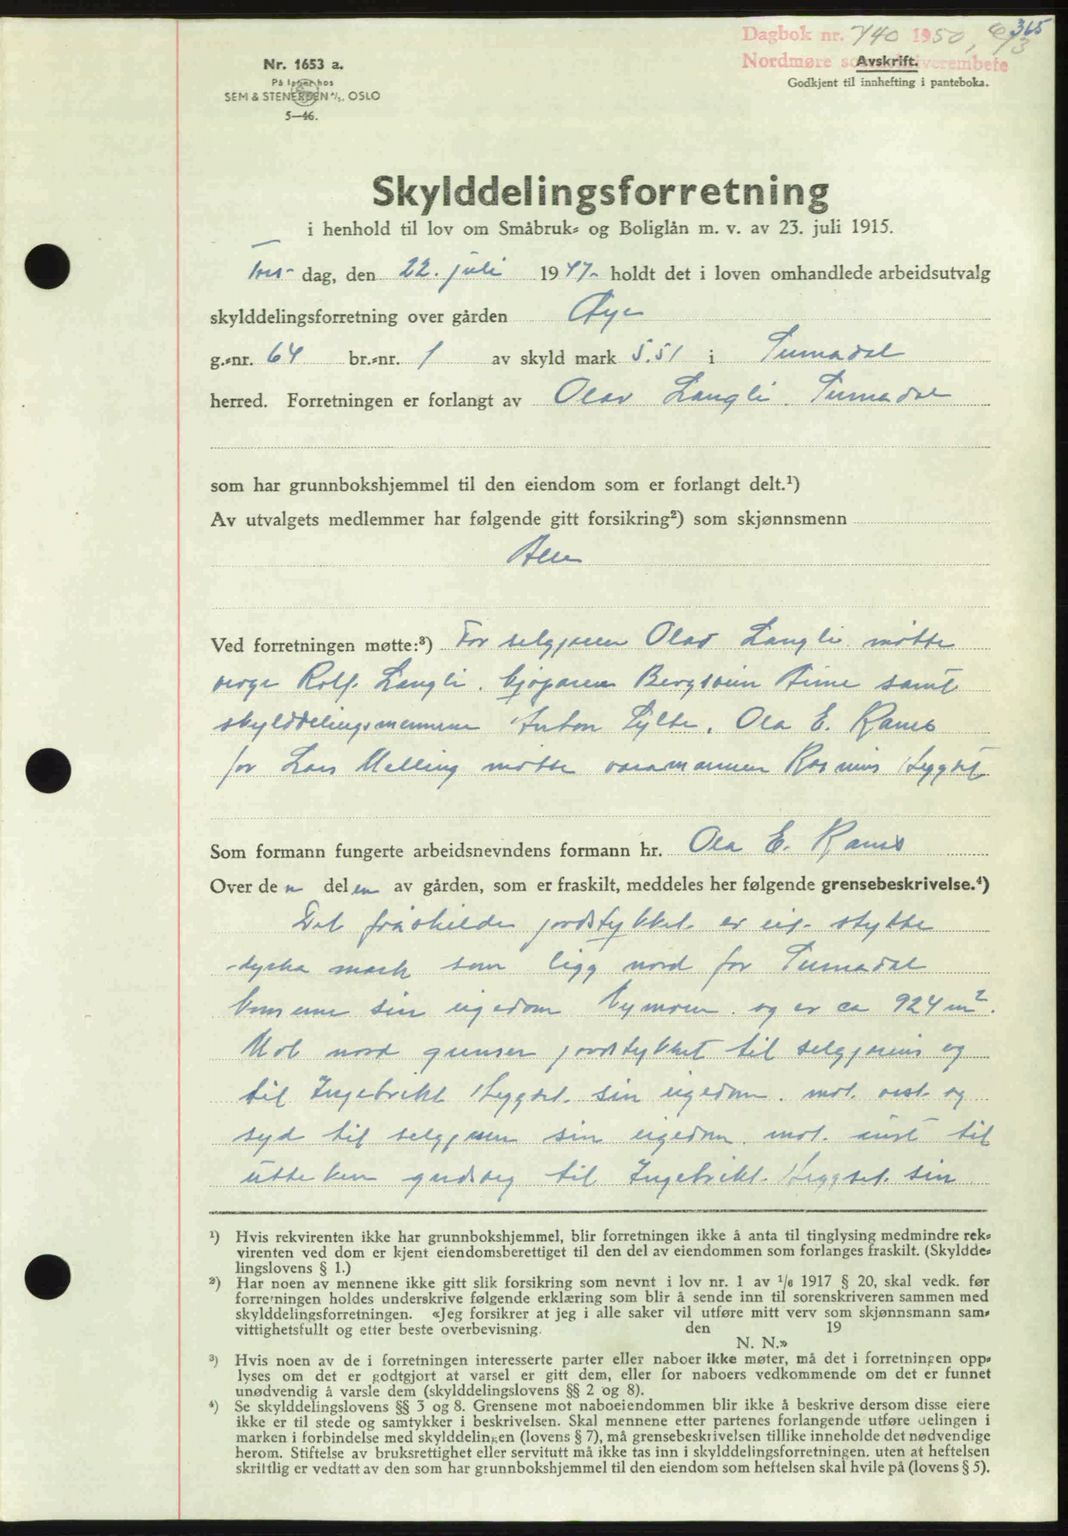 365
Dagbok nr. 740 1950, 6/3
Nordmøre sorenskriverembete
Avskrift.
Godkjent til innhefting i panteboka.
Nr. 1653 a.
På lager hos
SEM & STENERSEN A/S. OSLO
5—46.
Skylddelingsforretning
i henhold til lov om Småbruk- og Boliglån m. v. av 23. juli 1915.
dag, den 22. juli 1947- holdt det i loven omhandlede arbeidsutvalg
skylddelingsforretning over gården Øye
g.-nr. 64 br.-nr. 1 av skyld mark 5.51 i Surnadal
herred. Forretningen er forlangt av Olav Langli. Surnadal
som har grunnbokshjemmel til den eiendom som er forlangt delt.¹)
Av utvalgets medlemmer har følgende gitt forsikring²) som skjønnsmenn
Alle
Ved forretningen møtte:³) For seljaren Olav Langli. møtte
verge Rolf Langli. kjøparen Bergsvein Aune samt
skylddelingsmennene Anton Sylte, Ola E. Ranes
for Lars Melling møtte varamannen Rasmus Heggset
Som formann fungerte arbeidsnevndens formann hr. Ola E. Ranes
Over de n del en av gården, som er fraskilt, meddeles her følgende grensebeskrivelse.⁴)
Det fråskilde jordstykket er eit stykke
dyrka mark som ligg nord for Surnadal
kommune sin eigedom Bymoen. og er ca 924 m².
Mot nord grenser jordstykket til selgjarens og
til Ingebrikt Heggset. sin eigedom. mot. vest og
syd til selgjaren sin eigedom. mot. aust til
utteken gardsveg til Ingebrikt. Heggset. sin
¹) Hvis rekvirenten ikke har grunnbokshjemmel, blir forretningen ikke å anta til tinglysing medmindre rek-
virenten ved dom er kjent eiendomsberettiget til den del av eiendommen som forlanges fraskilt. (Skyldde-
lingslovens § 1.)
²) Har noen av mennene ikke gitt slik forsikring som nevnt i lov nr. 1 av 1/6 1917 § 20, skal vedk. før
forretningen holdes underskrive følgende erklæring som blir å sende inn til sorenskriveren sammen med
skylddelingsforretningen. «Jeg forsikrer at jeg i alle saker vil utføre mitt verv som skjønnsmann sam-
vittighetsfullt og etter beste overbevisning. den 19
N. N.»
³) Hvis noen av de i forretningen interesserte parter eller naboer ikke møter, må det i forretningen opp-
lyses om det er godtgjort at varsel er gitt dem, eller for naboers vedkommende om det er funnet
unødvendig å varsle dem (skylddelingslovens §§ 2 og 8).
⁴) Se skylddelingslovens §§ 3 og 8. Grensene mot naboeiendommen blir ikke å beskrive dersom disse eiere
ikke er til stede og samtykker i beskrivelsen. Skal mennene etter partenes forlangende utføre delingen i
marken i forbindelse med skylddelingen (lovens § 7), må grensebeskrivelsen tillike inneholde det nødvendige
herom. Stiftelse av bruksrettighet eller servitutt må ikke tas inn i skylddelingsforretningen, uten at heftelsen
skriftlig er vedtatt av den som har grunnbokshjemmel til den eiendom som heftelsen skal hvile på (lovens § 5).